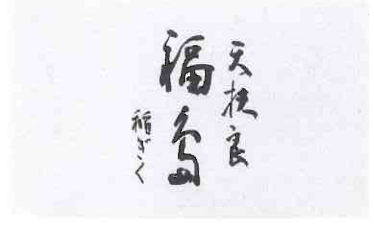 天扶良
福島
稲ぎく